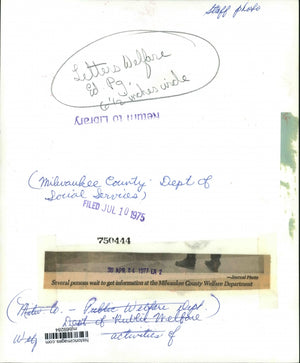 Staff photo
Letters Welfare
Ed Pg.
6 1/2 inches wide
Return to Library
(Milwaukee County Dept of
Social Services)
FILED JUL 10 1975
750444
30 APR 24 1977 EX 2
—Journal Photo
Several persons wait to get information at the Milwaukee County Welfare Department
Public Welfare dept.)
Dept of Public Welfare
activities of
historicimages.com